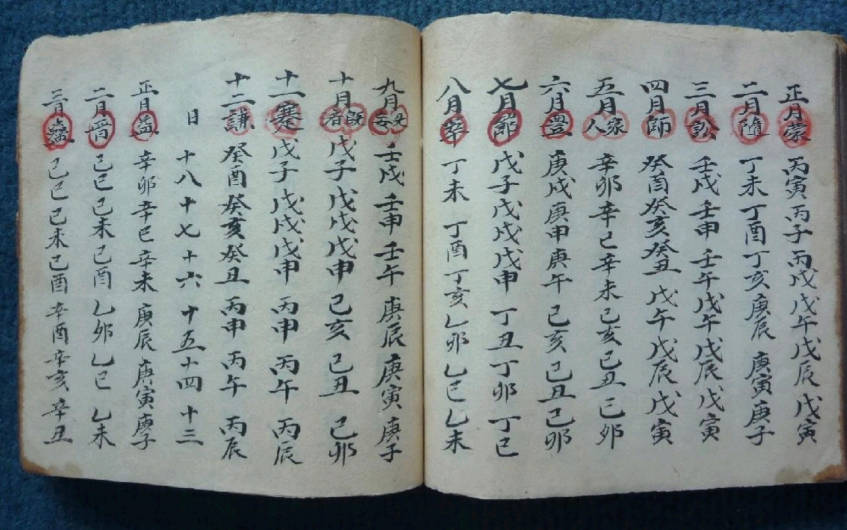 正月蒙 丙寅丙子丙戌戊午戊辰戊寅
二月隨 丁未丁酉丁亥庚辰庚寅庚子
三月訟 壬戌壬申壬午戊午戊辰戊寅
四月師 癸酉癸亥癸丑戊午戊辰戊寅
五月家人 辛卯辛巳辛未己亥己丑己卯
六月豐 庚戌庚申庚午己亥己丑己卯
七月節 戊子戊戌戊申丁丑丁卯丁巳
八月萃 丁未丁酉丁亥乙卯乙巳乙未
九月无妄 壬戌壬申壬午庚辰庚寅庚子
十月既 戊子戊戌戊申己亥己丑己卯
十一蹇 戊子戊戌戊申丙申丙午丙辰
十二謙 癸酉癸亥癸丑丙申丙午丙辰
日 十八十七十六十五十四十三
正月益 辛卯辛巳辛未庚辰庚寅庚子
二月晉 己巳己未己酉乙卯乙巳乙未
三月鼎 己巳己未己酉辛酉辛亥辛丑